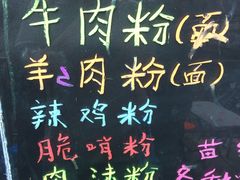 牛肉粉(面)
羊肉粉(面)
辣鸡粉
脆哨粉
肉沫粉